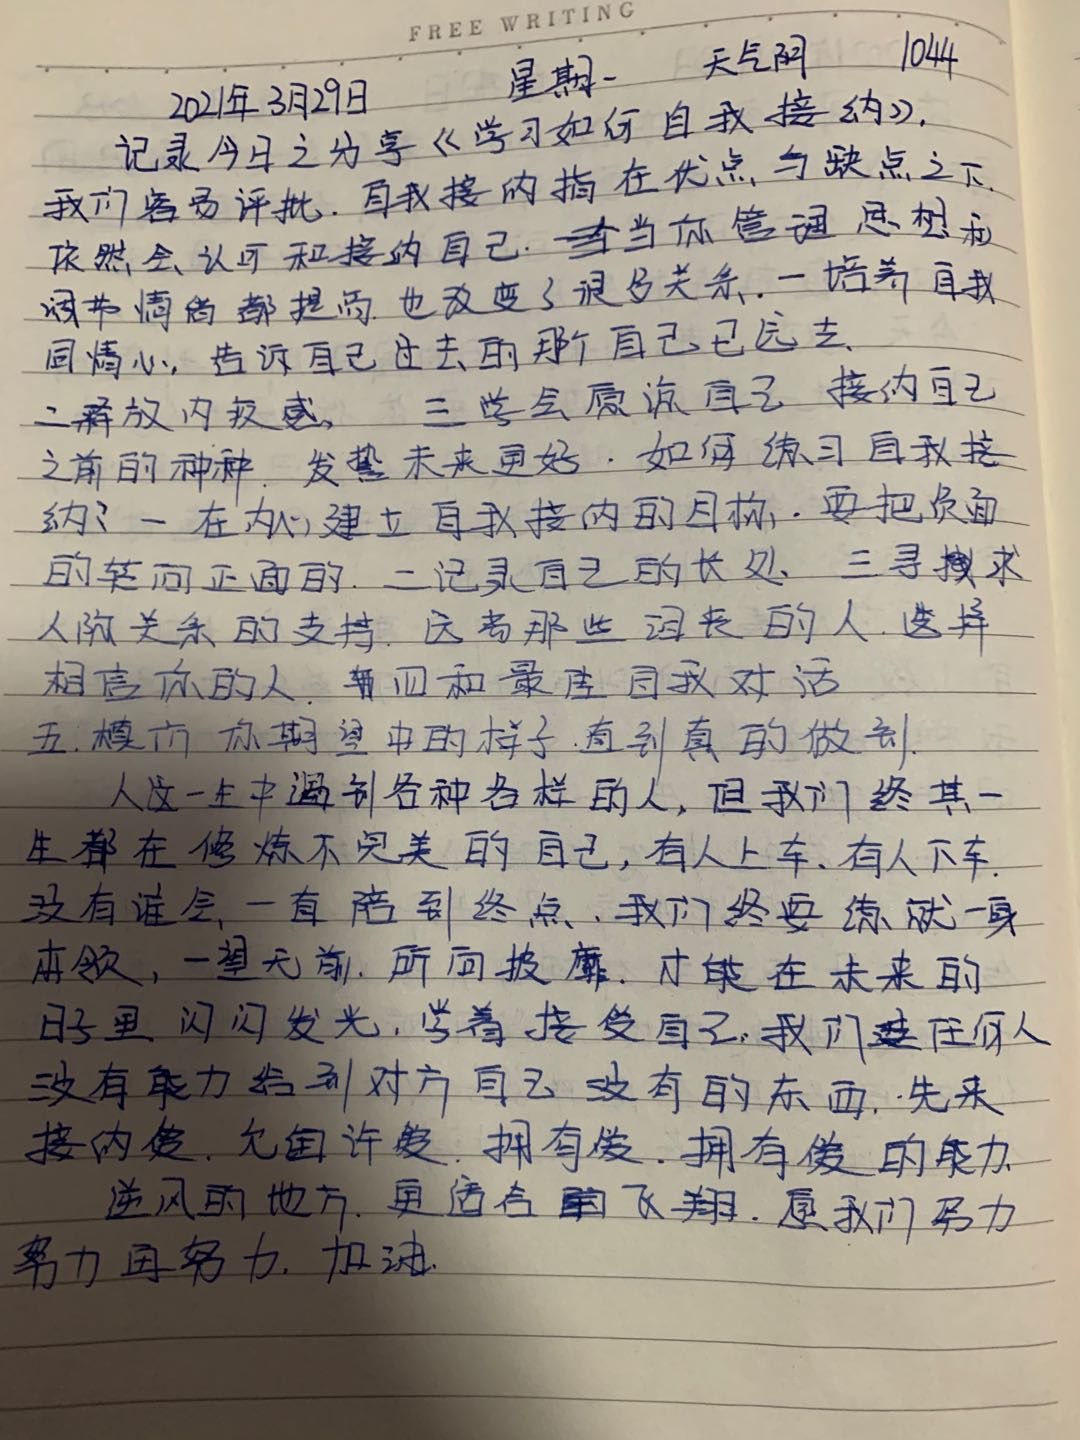 FREE WRITING
2021年3月29日 星期一 天气阴 1044
记录今日之分享《学习如何自我接纳》.
我们容易评批.自我接纳指在优点与缺点之下.
依然会认可和接纳自己.当你管理思想和
调节情绪都提高.也改变了很多关系.一培养自我
同情心,告诉自己过去的那个自己已远去.
二释放内疚感。 三学会原谅自己 接纳自己
之前的种种.发势未来更好.如何练习自我接
纳?一在内心建立自我接纳的目标.要把负面
的转向正面的.二记录自己的长处、三寻求
人际关系的支持.远离那些沮丧的人.选择
相信你的人. 四和最佳自我对话
五.模仿你期望中的样子.直到真的做到.
人这一生中遇到各种各样的人,但我们终其一
生都在修炼不完美的自己,有人上车、有人下车.
没有谁会一直陪到终点.我们终要练就一身
本领,一望无前.所向披靡.才能在未来的
日子里闪闪发光.学着接受自己.我们任何人
没有能力给到对方自己没有的东西.先来
接纳爱.允许爱.拥有爱.拥有爱的能力.
逆风的地方.更适合飞翔.愿我们努力
努力再努力.加油.